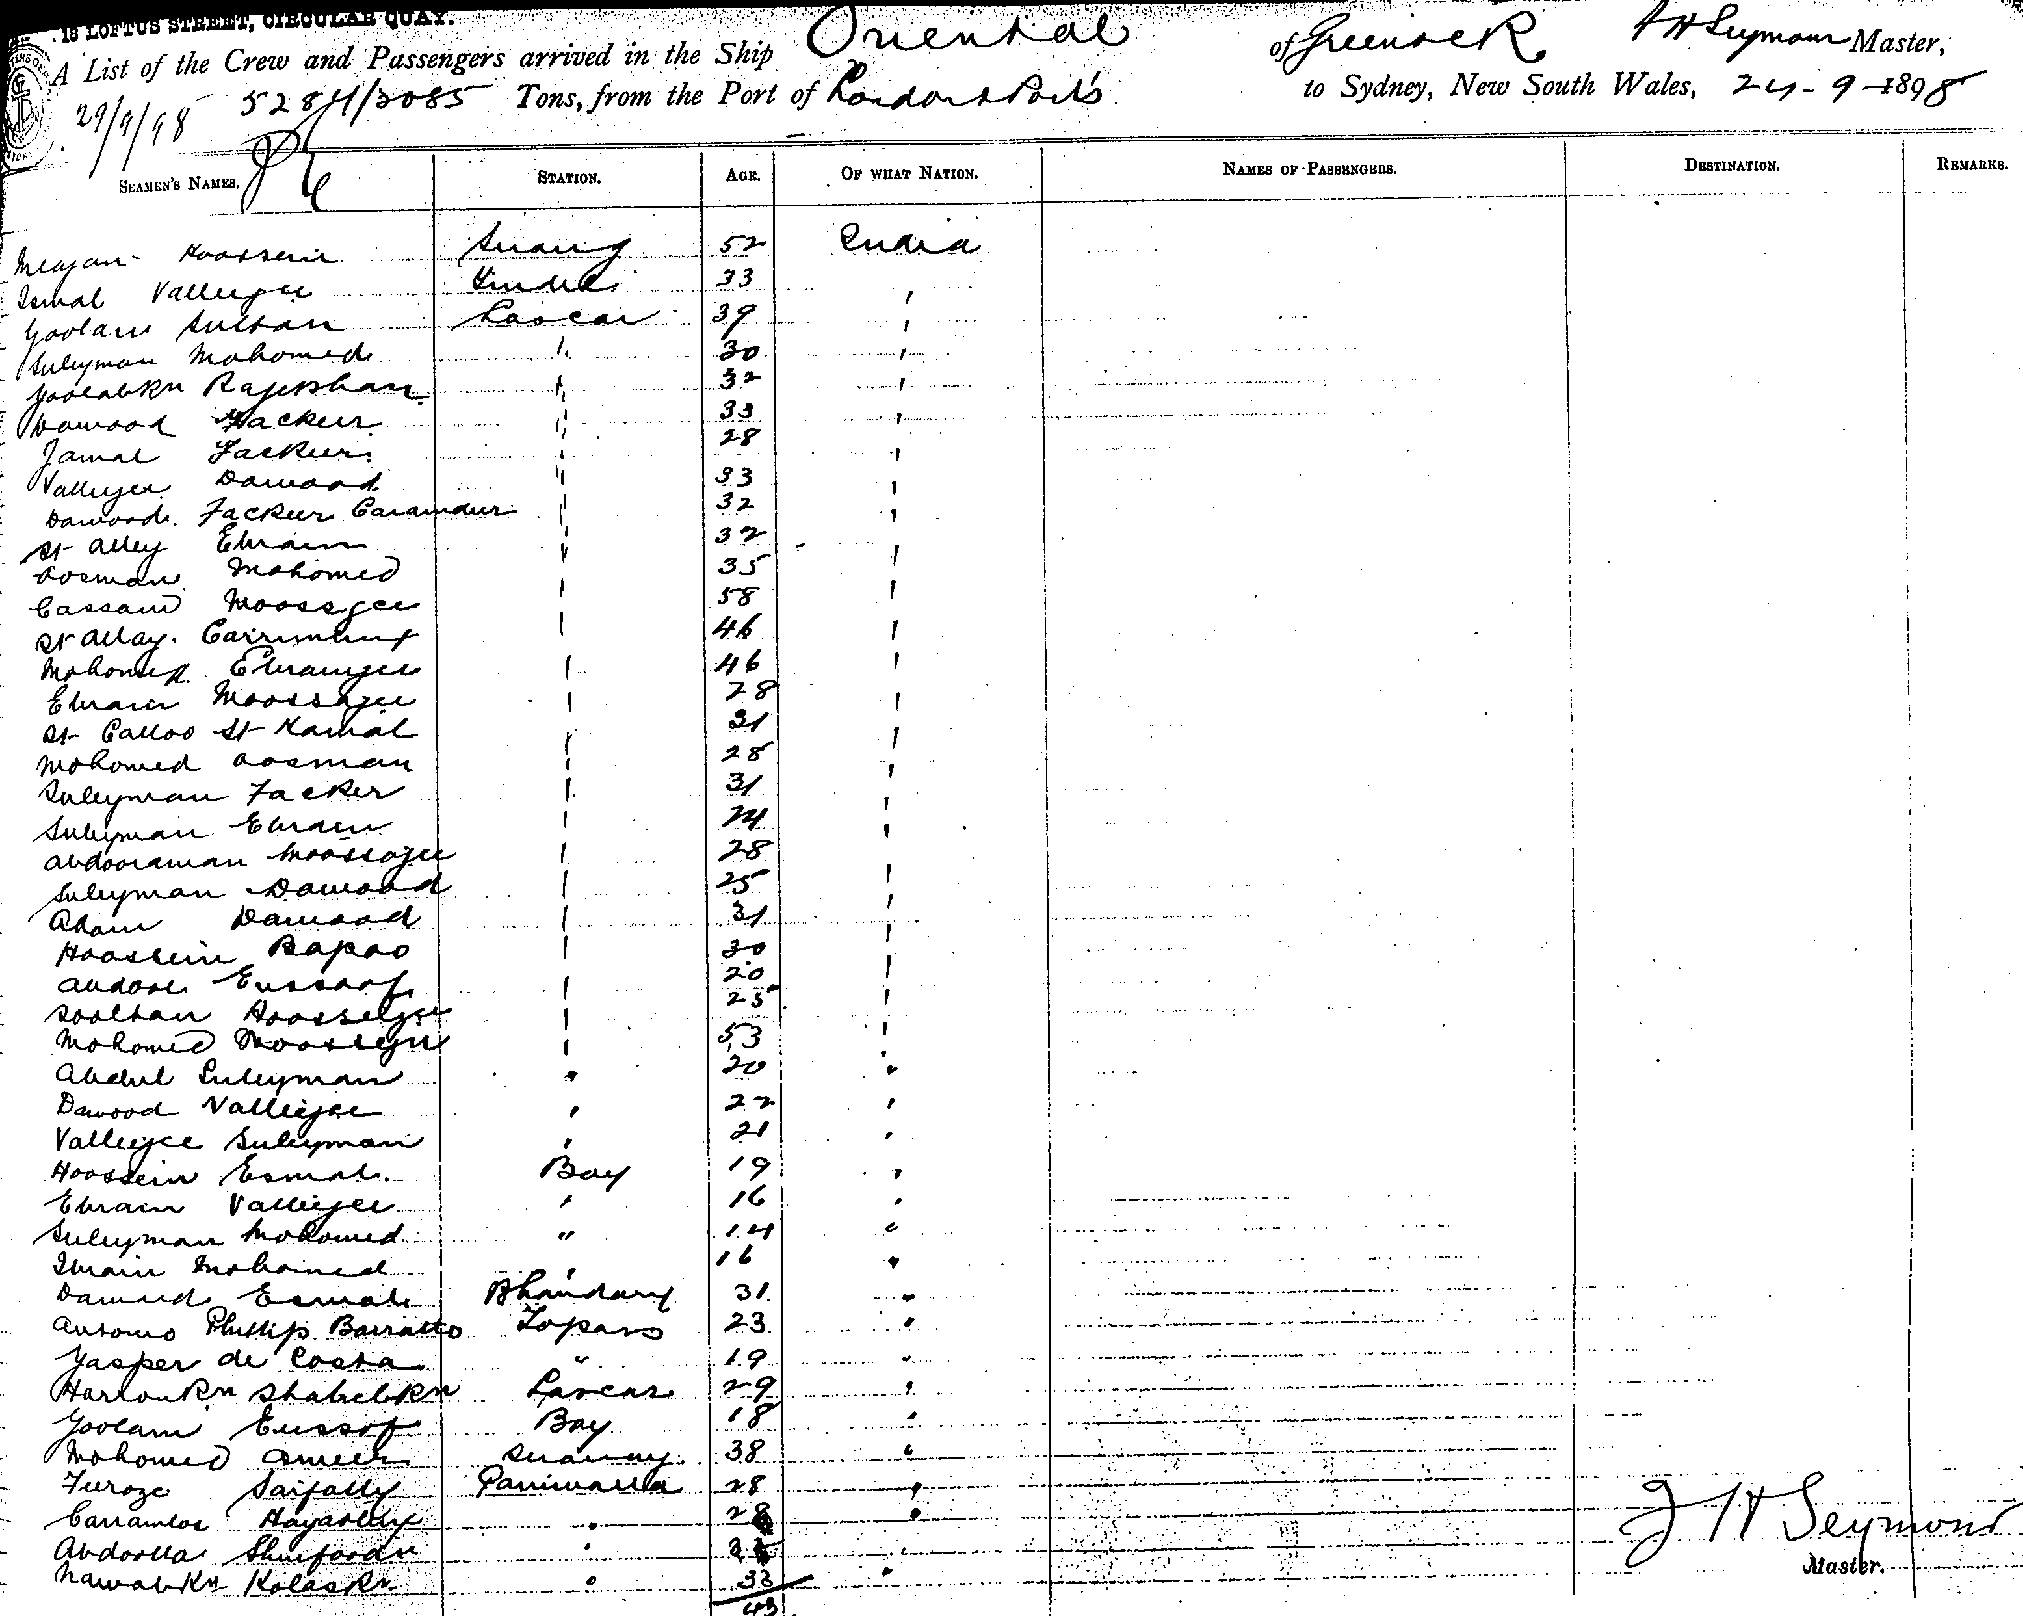 18 LOFTUS STREET, CIRCULAR QUAY.
A List of the Crew and Passengers arrived in the Ship Oriental of Greenock J H Seymour Master,
29/9/98 5284/3085 Tons, from the Port of London & Ports to Sydney, New South Wales, 24-9-1898
SEAMEN'S NAMES. STATION. AGE. OF WHAT NATION. NAMES OF PASSENGERS. DESTINATION. REMARKS.
Meajan Hoossein Serang 52 India
Ismal Valleejee 33 '
Goolam Sultan Lascar 39 '
Suleyman Mohomed " 30 '
Goolabkn Rajekhan " 32 '
Dawood Fackeer " 33 '
Jamal Fackeer " 28 '
Valleejee Dawood " 33 '
Dawood Fackeer Caramdeer " 32 '
St Alley Ebraim " 32 '
Oosman Mohomed ' 35 '
Cassam Moossajee ' 58 '
St Allay 46 '
Mohomed Ebramjee ' 46 '
Ebraim Moossajee ' 28 '
St Calloo St Kamal ' 31 '
Mohomed Oosman ' 28 '
Suleyman Facker ' 31 '
Suleyman Ebraim ' 24 '
Abdooraman Moossajee ' 28 '
Suleyman Dawood ' 25 '
Adam Dawood ' 31 '
Hoossein Bapoo ' 30 '
Eussoof ' 20 '
Sooltan Hoossejee ' 25 '
Mohomed Moossejee ' 53 '
Abdul Suleyman " 20 "
Dawood Valleejee ' 22 '
Valleejee Suleyman ' 21 '
Hoossein Esmal Boy 19 '
Ebraim Valleejee ' 16 '
Suleyman Mohomed " 14 "
Ibraim Mohomed ' 16 "
Dawood Esmal Bhandary 31 "
Antonio Phillip Barratto Topass 23 "
Jasper de Costa " 19 "
Haroonkn Shabelkn Lascar 29 '
Goolam Eussof Boy 18 "
Mohomed Ameer Serang 38 "
Feroze Saifally Paniwalla 28 '
Hayatally " 28 "
Abdoolla "
Nawabkn Kalaskn " 33 "
43
J H Seymour
Master.